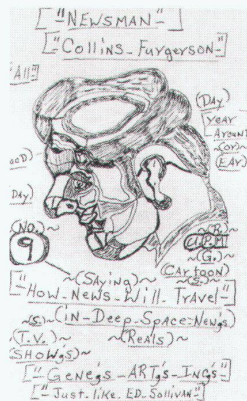 ["NEWSMAN"]
["Collins-Furgerson"]
"All"
(Day)
year
Around
(or)~
(EAr)
DAy)
(No.)~
9
~(R.)
~(G.)
CArtoon)
~(SAying)~
~S.)~
["How-News-Will-Travel"]
~(S.)~ (IN-Deep-Space-New's)
(T.V.)~ ~(Reals)~
SHOW'g's)
["Gene'g's-ARTg's-Ing's"]
["Just-like-ED-Sollivan"]